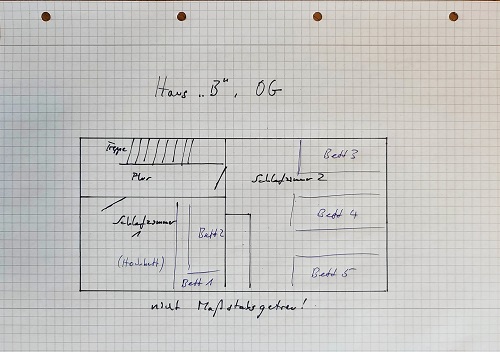 Haus „B", OG
Treppe
Flur
Schlafzimmer 2
Bett 3
Schlafzimmer
1
Bett 2
Bett 4
(Hochbett)
Bett 1
Bett 5
nicht Maßstabsgetreu!